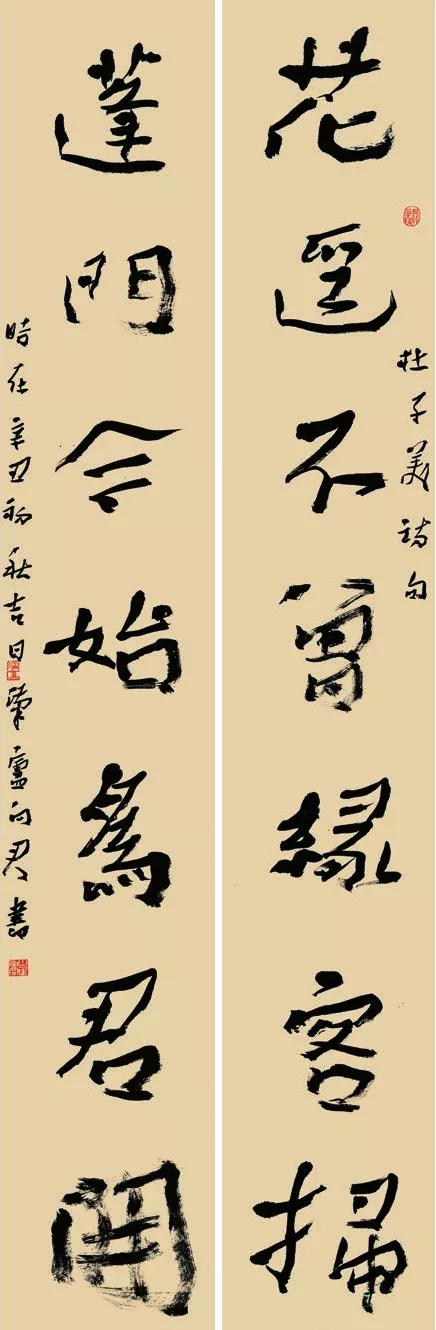 杜子美詩句
花逕不曾緣客掃
蓬門今始為君開
時在辛丑初秋吉日廬向君書